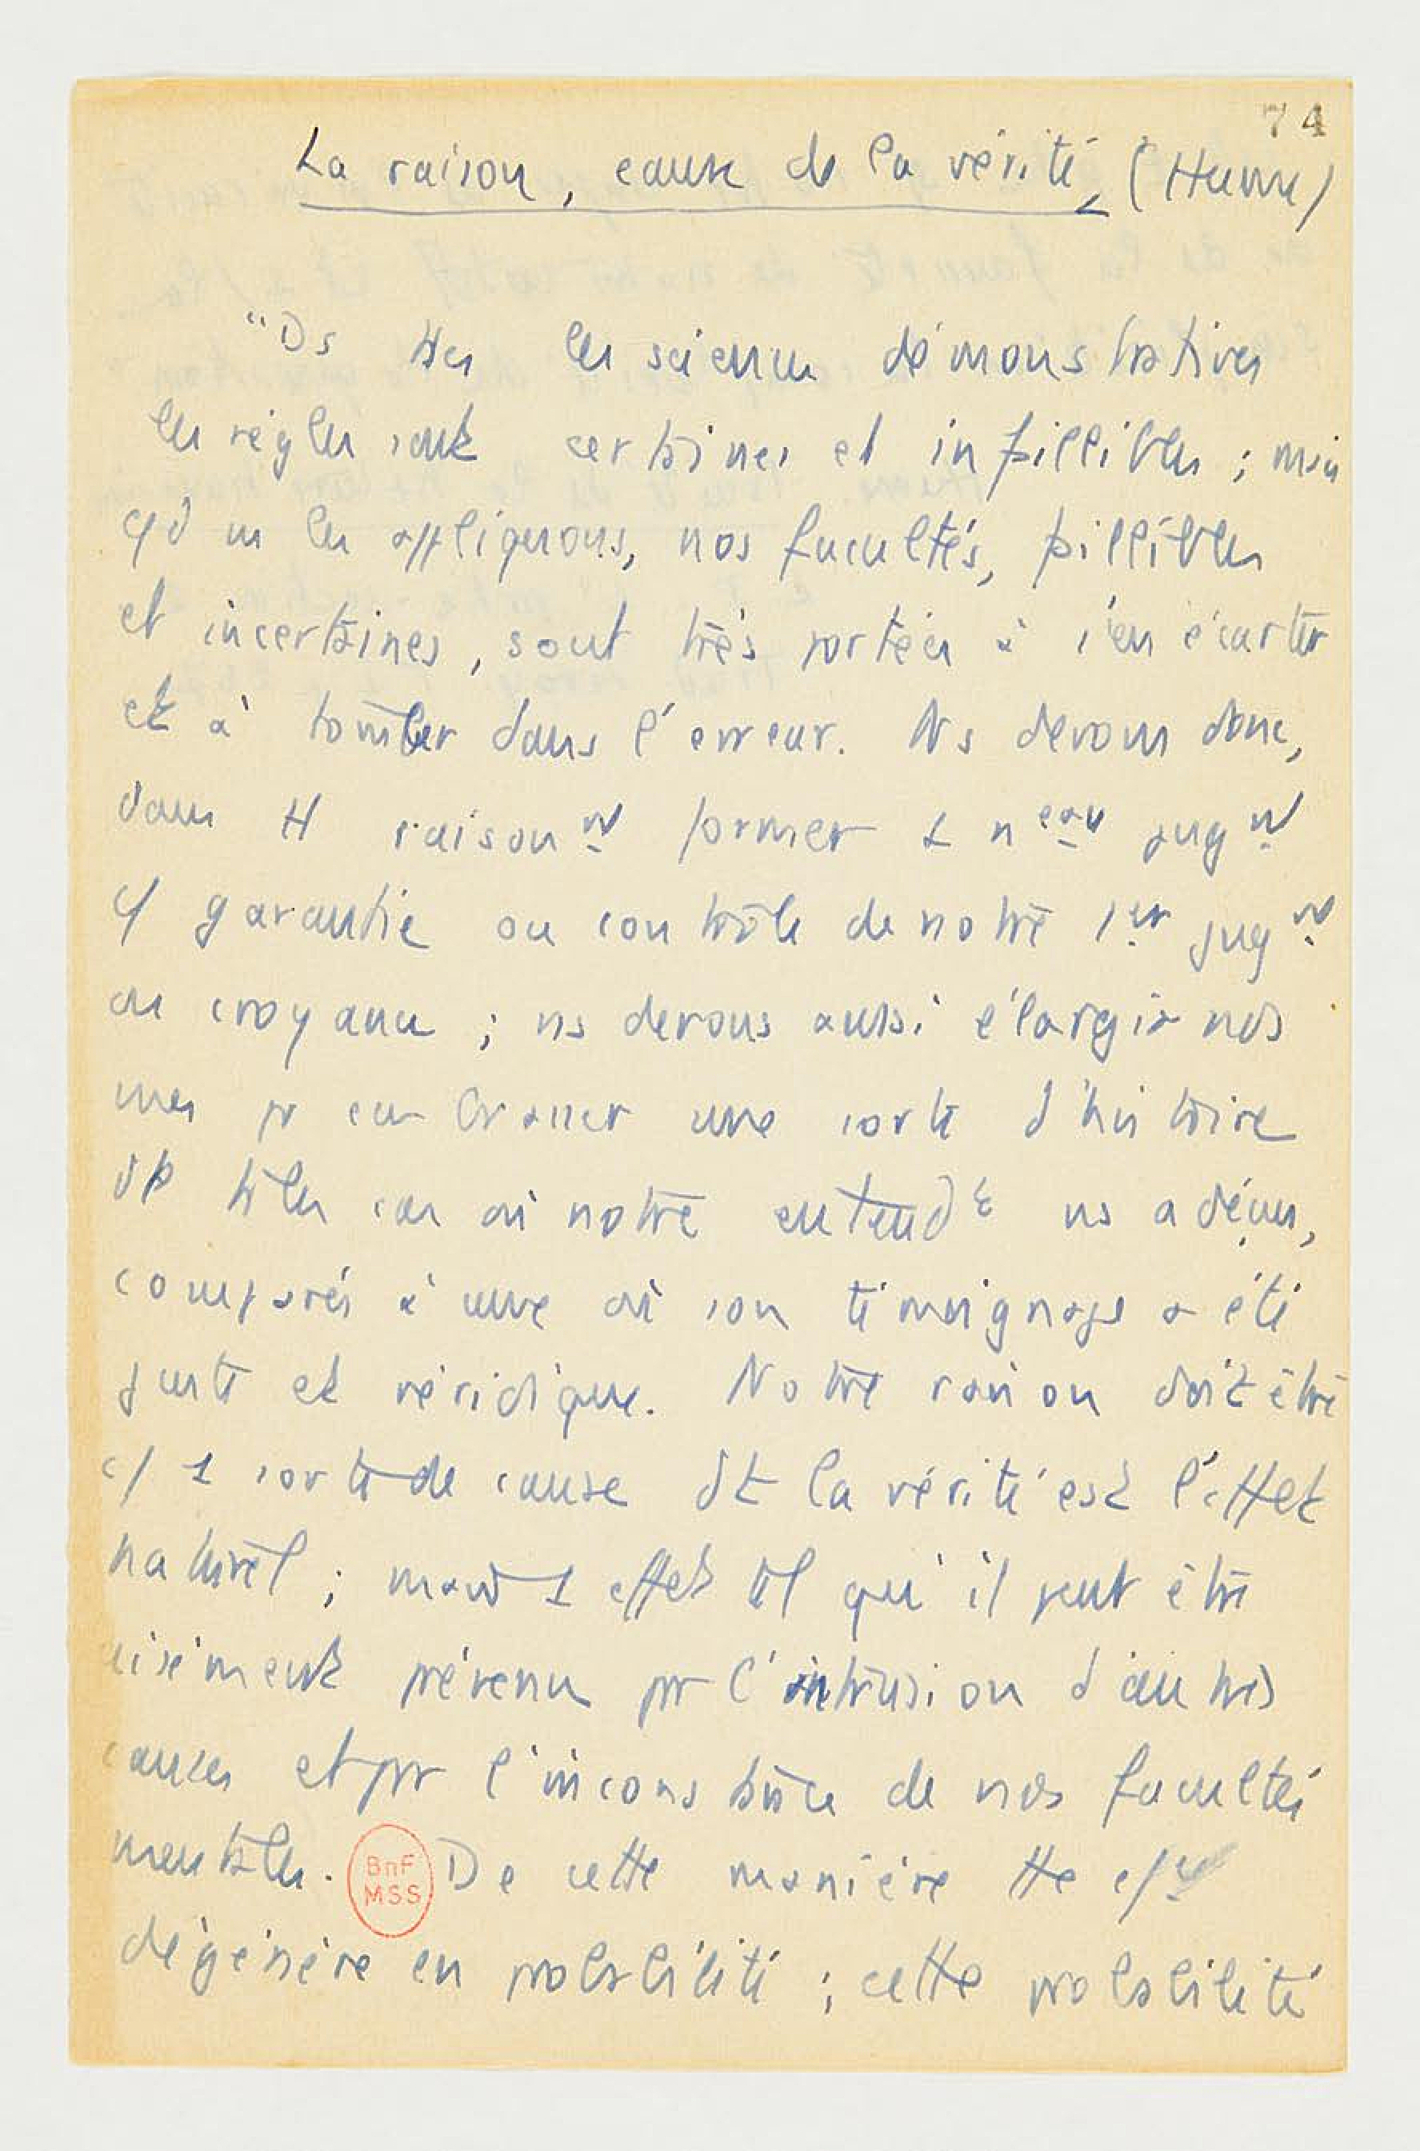 74
La raison, cause de la vérité (Hume)
"Ds ttes les sciences démonstratives
les règles sont certaines et infaillibles ; mais
qd ns les appliquons, nos facultés, faillibles
et incertaines, sont très portées à s'en écarter
et à tomber dans l'erreur. Ns devons donc,
dans tt raisonnt former 1 neau jugnt
c/ garantie ou contrôle de notre 1er jugnt
ou croyance ; ns devons aussi élargir nos
vues pr en brosser une sorte d'histoire
de ts les cas où notre entendt ns a déçus,
comparés à ceux où son témoignage a été
juste et véridique. Notre raison doit être
c/ 1 sorte de cause dt la vérité est l'effet
naturel ; mais 1 effet tel qu'il peut être
aisément prévenu pr l'intrusion d'autres
causes et pr l'inconstance de nos facultés
mentales. De cette manière tte
dégénère en probabilité ; cette probabilité
BnF
MSS